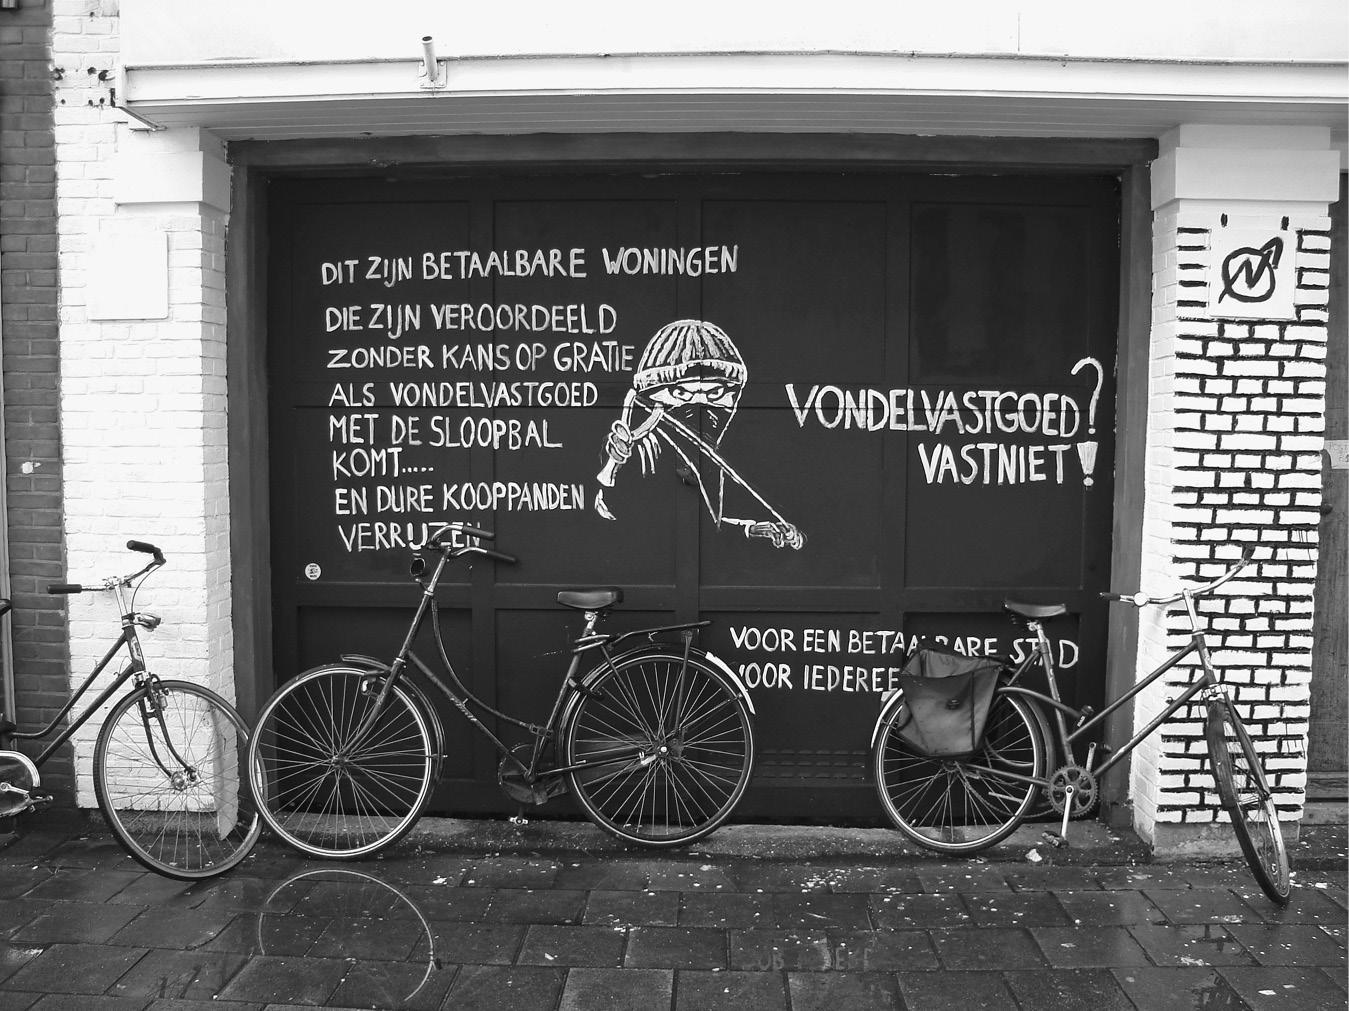 DIT ZIJN BETAALBARE WONINGEN
DIE ZIJN VEROORDEELD
ZONDER KANS OP GRATIE
ALS VONDELVASTGOED
MET DE SLOOPBAL
KOMT.....
EN DURE KOOPPANDEN
VERRIJZEN
VONDELVASTGOED?
VASTNIET!
VOOR EEN BETAALBARE STAD
VOOR IEDEREE